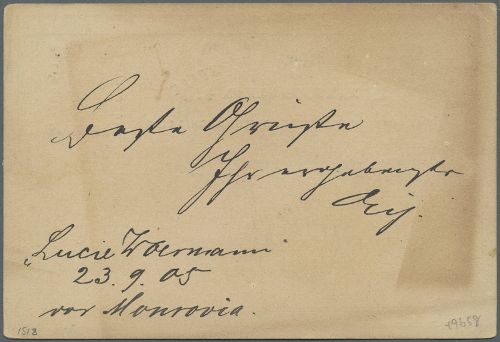 Beste Grüße
Ihr ergebenster
„Lucie Woermann"
23.9.05
vor Monrovia.
1518